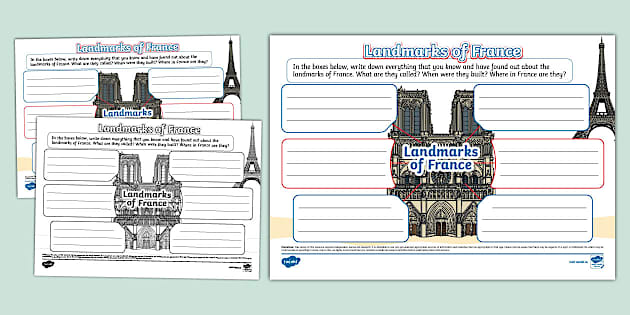 Landmarks of France
In the boxes below, write down everything that you know and have found out about the
landmarks of France. What are they called? When were they built? Where in France are they?
Landmarks
Landmarks of France
In the boxes below, write down everything that you know and have found out about the
landmarks of France. What are they called? When were they built? Where in France are they?
Landmarks
of France
Landmarks of France
In the boxes below, write down everything that you know and have found out about the
landmarks of France. What are they called? When were they built? Where in France are they?
Landmarks
of France
twinkl